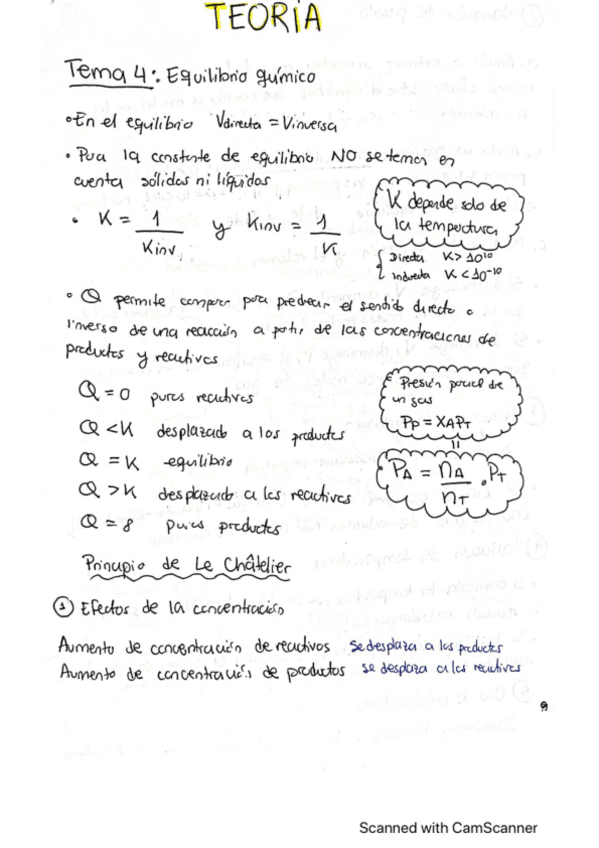 TEORIA
Tema 4: Equilibrio químico
• En el equilibrio Vdirecta = Vinversa
• Para la constante de equilibrio NO se temos en
cuenta sólidos ni líquidos
K depende solo de
la temperatura
• K = 1/Kinv y Kinv = 1/K
Directa K > 10^10
Indirecta K < 10^-10
• Q permite comparar para predecir el sentido directo o
inverso de una reacción a partir de las concentraciones de
productos y reactivos
Presión parcial de
un gas
Pp = XAPT
=
PA = nA/nT . PT
Q = 0 puros reactivos
Q < K desplazado a los productos
Q = K equilibrio
Q > K desplazado a los reactivos
Q = 8 puros productos
Principio de Le Châtelier
1 Efectos de la concentración
Aumento de concentración de reactivos se desplaza a los productos
Aumento de concentración de productos se desplaza a los reactivos
Scanned with CamScanner